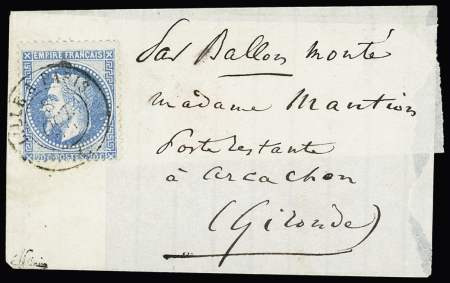 EMPIRE FRANÇAIS
20 C POSTES 20 C
Par Ballon monté
madame Mantion
Poste restante
à arcachon
(Gironde)